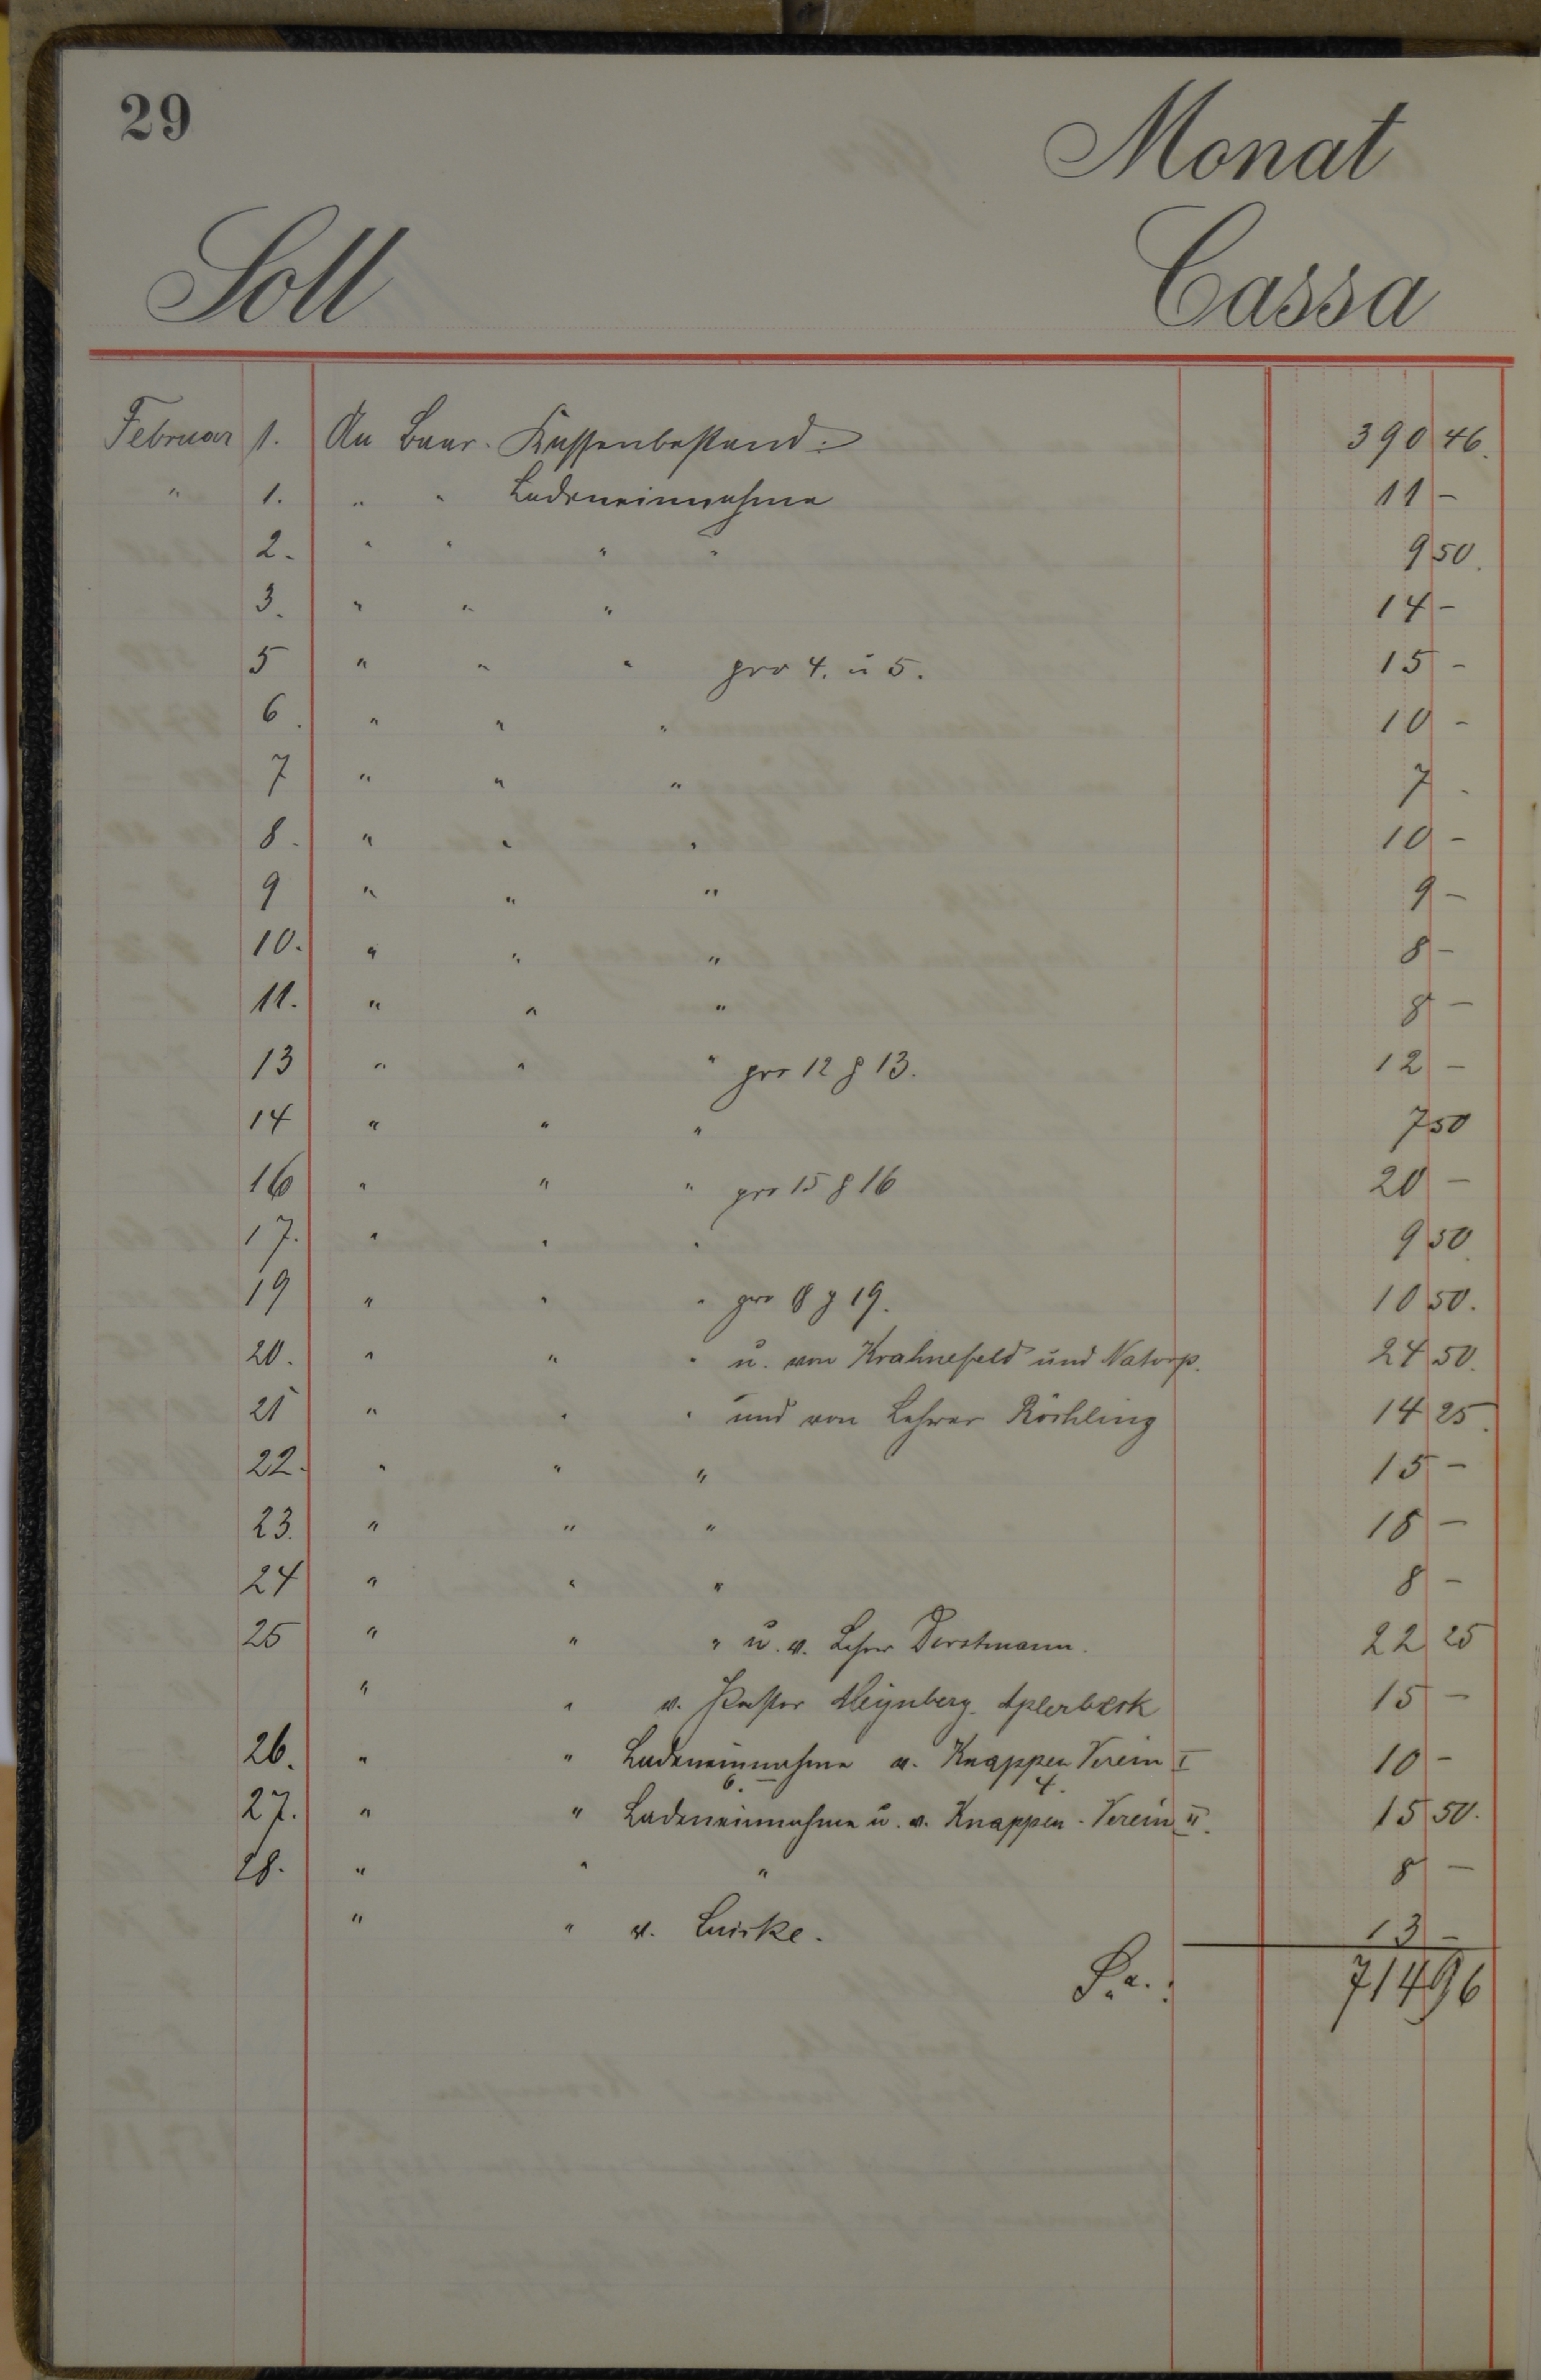 29
Monat
Soll
Cassa
Februar 1. An Baar-Kassenbestand. 390 46.
" 1. " " Ladeneinnahme 11 -
2. " " " " 9 50.
3. " " " 14 -
5 " " " pro 4. u 5. 15 -
6. " " " 10 -
7 " " " 7 -
8. " " " 10 -
9 " " " 9 -
10. " " " 8 -
11. " " " 8 -
13 " " " pro 12 & 13. 12 -
14 " " " 7 50
16 " " " pro 15 & 16 20 -
17. " " " 9 50.
19 " " " pro 8 & 19. 10 50.
20. " " " u. von Krahnefeld und Natorp. 24 50.
21 " " " und von Lehrer Röchling 14 25.
22. " " " 15 -
23. " " " 18 -
24 " " " 8 -
25 " " " u. v. Lehrer 22 25
" " v. Pastor Aplerbeck 15 -
26. " " Ladeneinnahme v. Knappen Verein I 10 -
6. 4.
27. " " Ladeneinnahme u. v. Knappen-Verein u. 15 50.
28. " " " 8 -
" " v. 13 -
Sa. 714 96